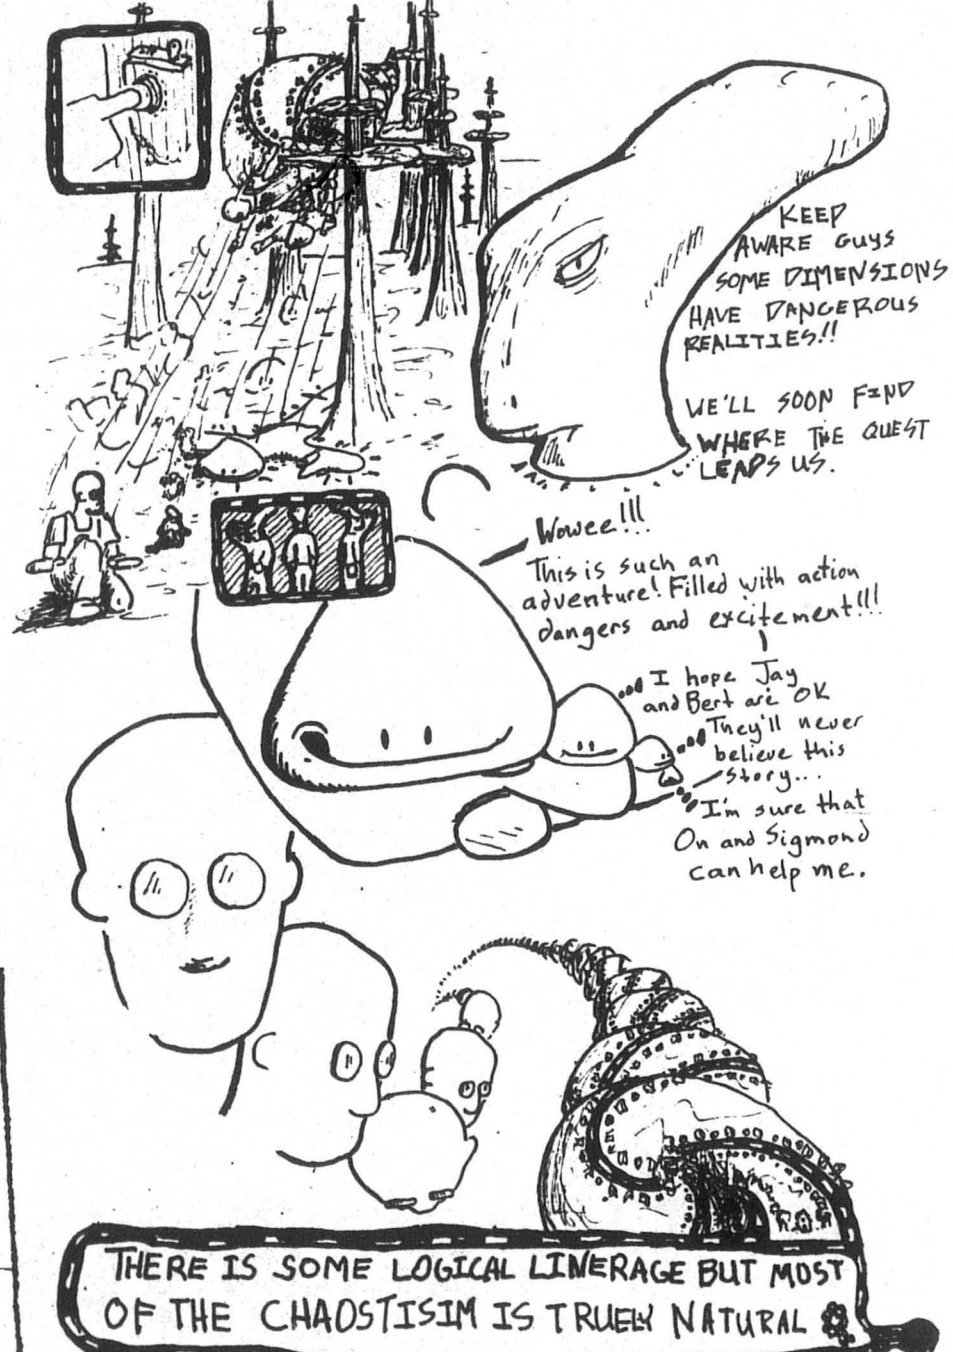 KEEP
AWARE GUYS
SOME DIMENSIONS
HAVE DANGEROUS
REALITIES!!
WE'LL SOON FIND
WHERE THE QUEST
LEADS US.
Wowee!!!
This is such an
adventure! Filled with action
dangers and excitement!!!
I hope Jay
and Bert are OK
They'll never
believe this
story...
I'm sure that
On and Sigmond
can help me.
THERE IS SOME LOGICAL LINERAGE BUT MOST
OF THE CHAOSTISIM IS TRUELY NATURAL